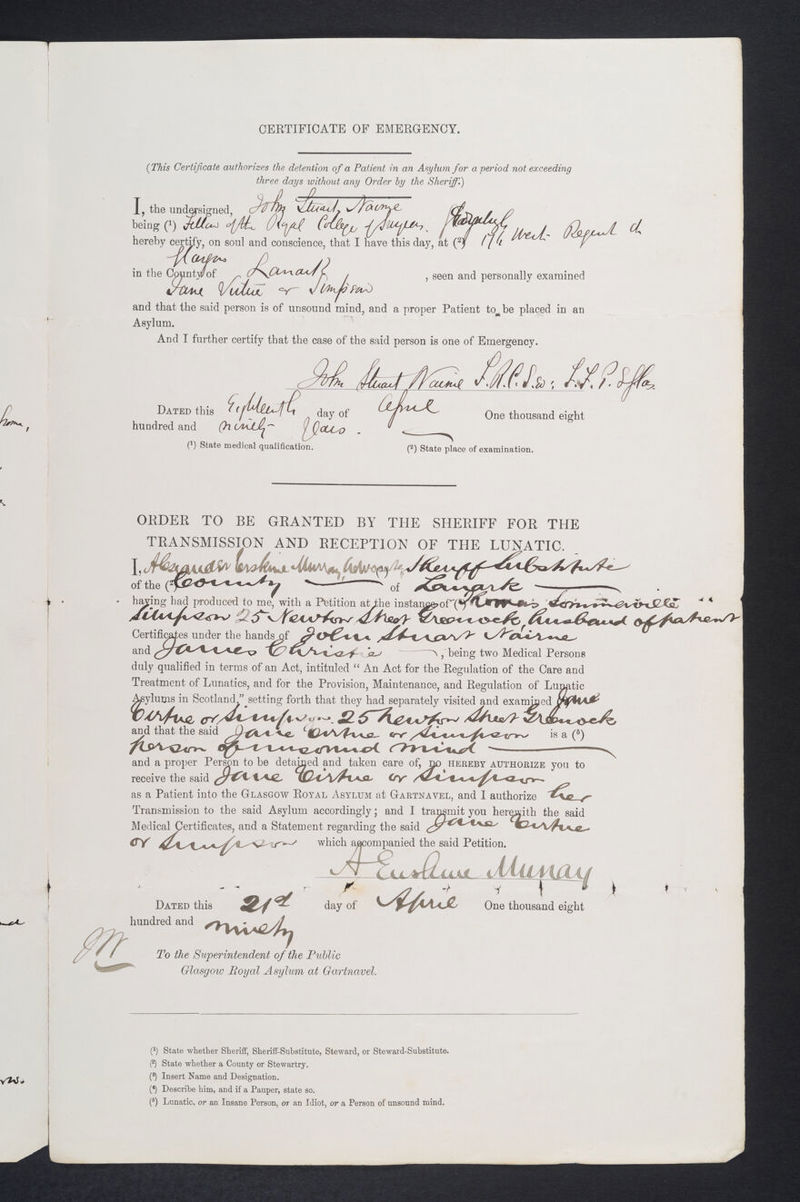 CERTIFICATE OF EMERGENCY.
(This Certificate authorizes the detention of a Patient in an Asylum for a period not exceeding
three days without any Order by the Sheriff.)
I, the undersigned, John Stuart Nairne
being (¹) Fellow of the Royal College of Surgeons,
hereby certify, on soul and conscience, that I have this day, at (²) West Regent St
Glasgow
in the County of Lanark, seen and personally examined
Jane Virtue or Simpson
and that the said person is of unsound mind, and a proper Patient to be placed in an
Asylum.
And I further certify that the case of the said person is one of Emergency.
John Stuart Nairne
DATED this Eighteenth day of April One thousand eight
hundred and ninety years.
(¹) State medical qualification.
(²) State place of examination.
ORDER TO BE GRANTED BY THE SHERIFF FOR THE
TRANSMISSION AND RECEPTION OF THE LUNATIC.
I, Alexander Erskine Murray, Advocate, Sheriff Substitute
of the (²) County of Lanark
having had produced to me, with a Petition at the instance of (³) Thomas Sommerville
Simpson 25 Newton Street Greenock, husband of patient
Certificates under the hands of John Stuart Nairne
and James Christie, being two Medical Persons
duly qualified in terms of an Act, intituled "An Act for the Regulation of the Care and
Treatment of Lunatics, and for the Provision, Maintenance, and Regulation of Lunatic
Asylums in Scotland," setting forth that they had separately visited and examined Jane
Virtue or Simpson, 25 Newton Street Greenock
and that the said Jane Virtue or Simpson is a (⁵)
person of unsound mind
and a proper Person to be detained and taken care of, DO HEREBY AUTHORIZE you to
receive the said Jane Virtue or Simpson
as a Patient into the GLASGOW ROYAL ASYLUM at GARTNAVEL, and I authorize her
Transmission to the said Asylum accordingly; and I transmit you herewith the said
Medical Certificates, and a Statement regarding the said Jane Virtue
or Simpson which accompanied the said Petition.
A Erskine Murray
DATED this 21st day of April One thousand eight
hundred and ninety
To the Superintendent of the Public
Glasgow Royal Asylum at Gartnavel.
(¹) State whether Sheriff, Sheriff-Substitute, Steward, or Steward-Substitute.
(²) State whether a County or Stewartry.
(³) Insert Name and Designation.
(⁴) Describe him, and if a Pauper, state so.
(⁵) Lunatic, or an Insane Person, or an Idiot, or a Person of unsound mind.